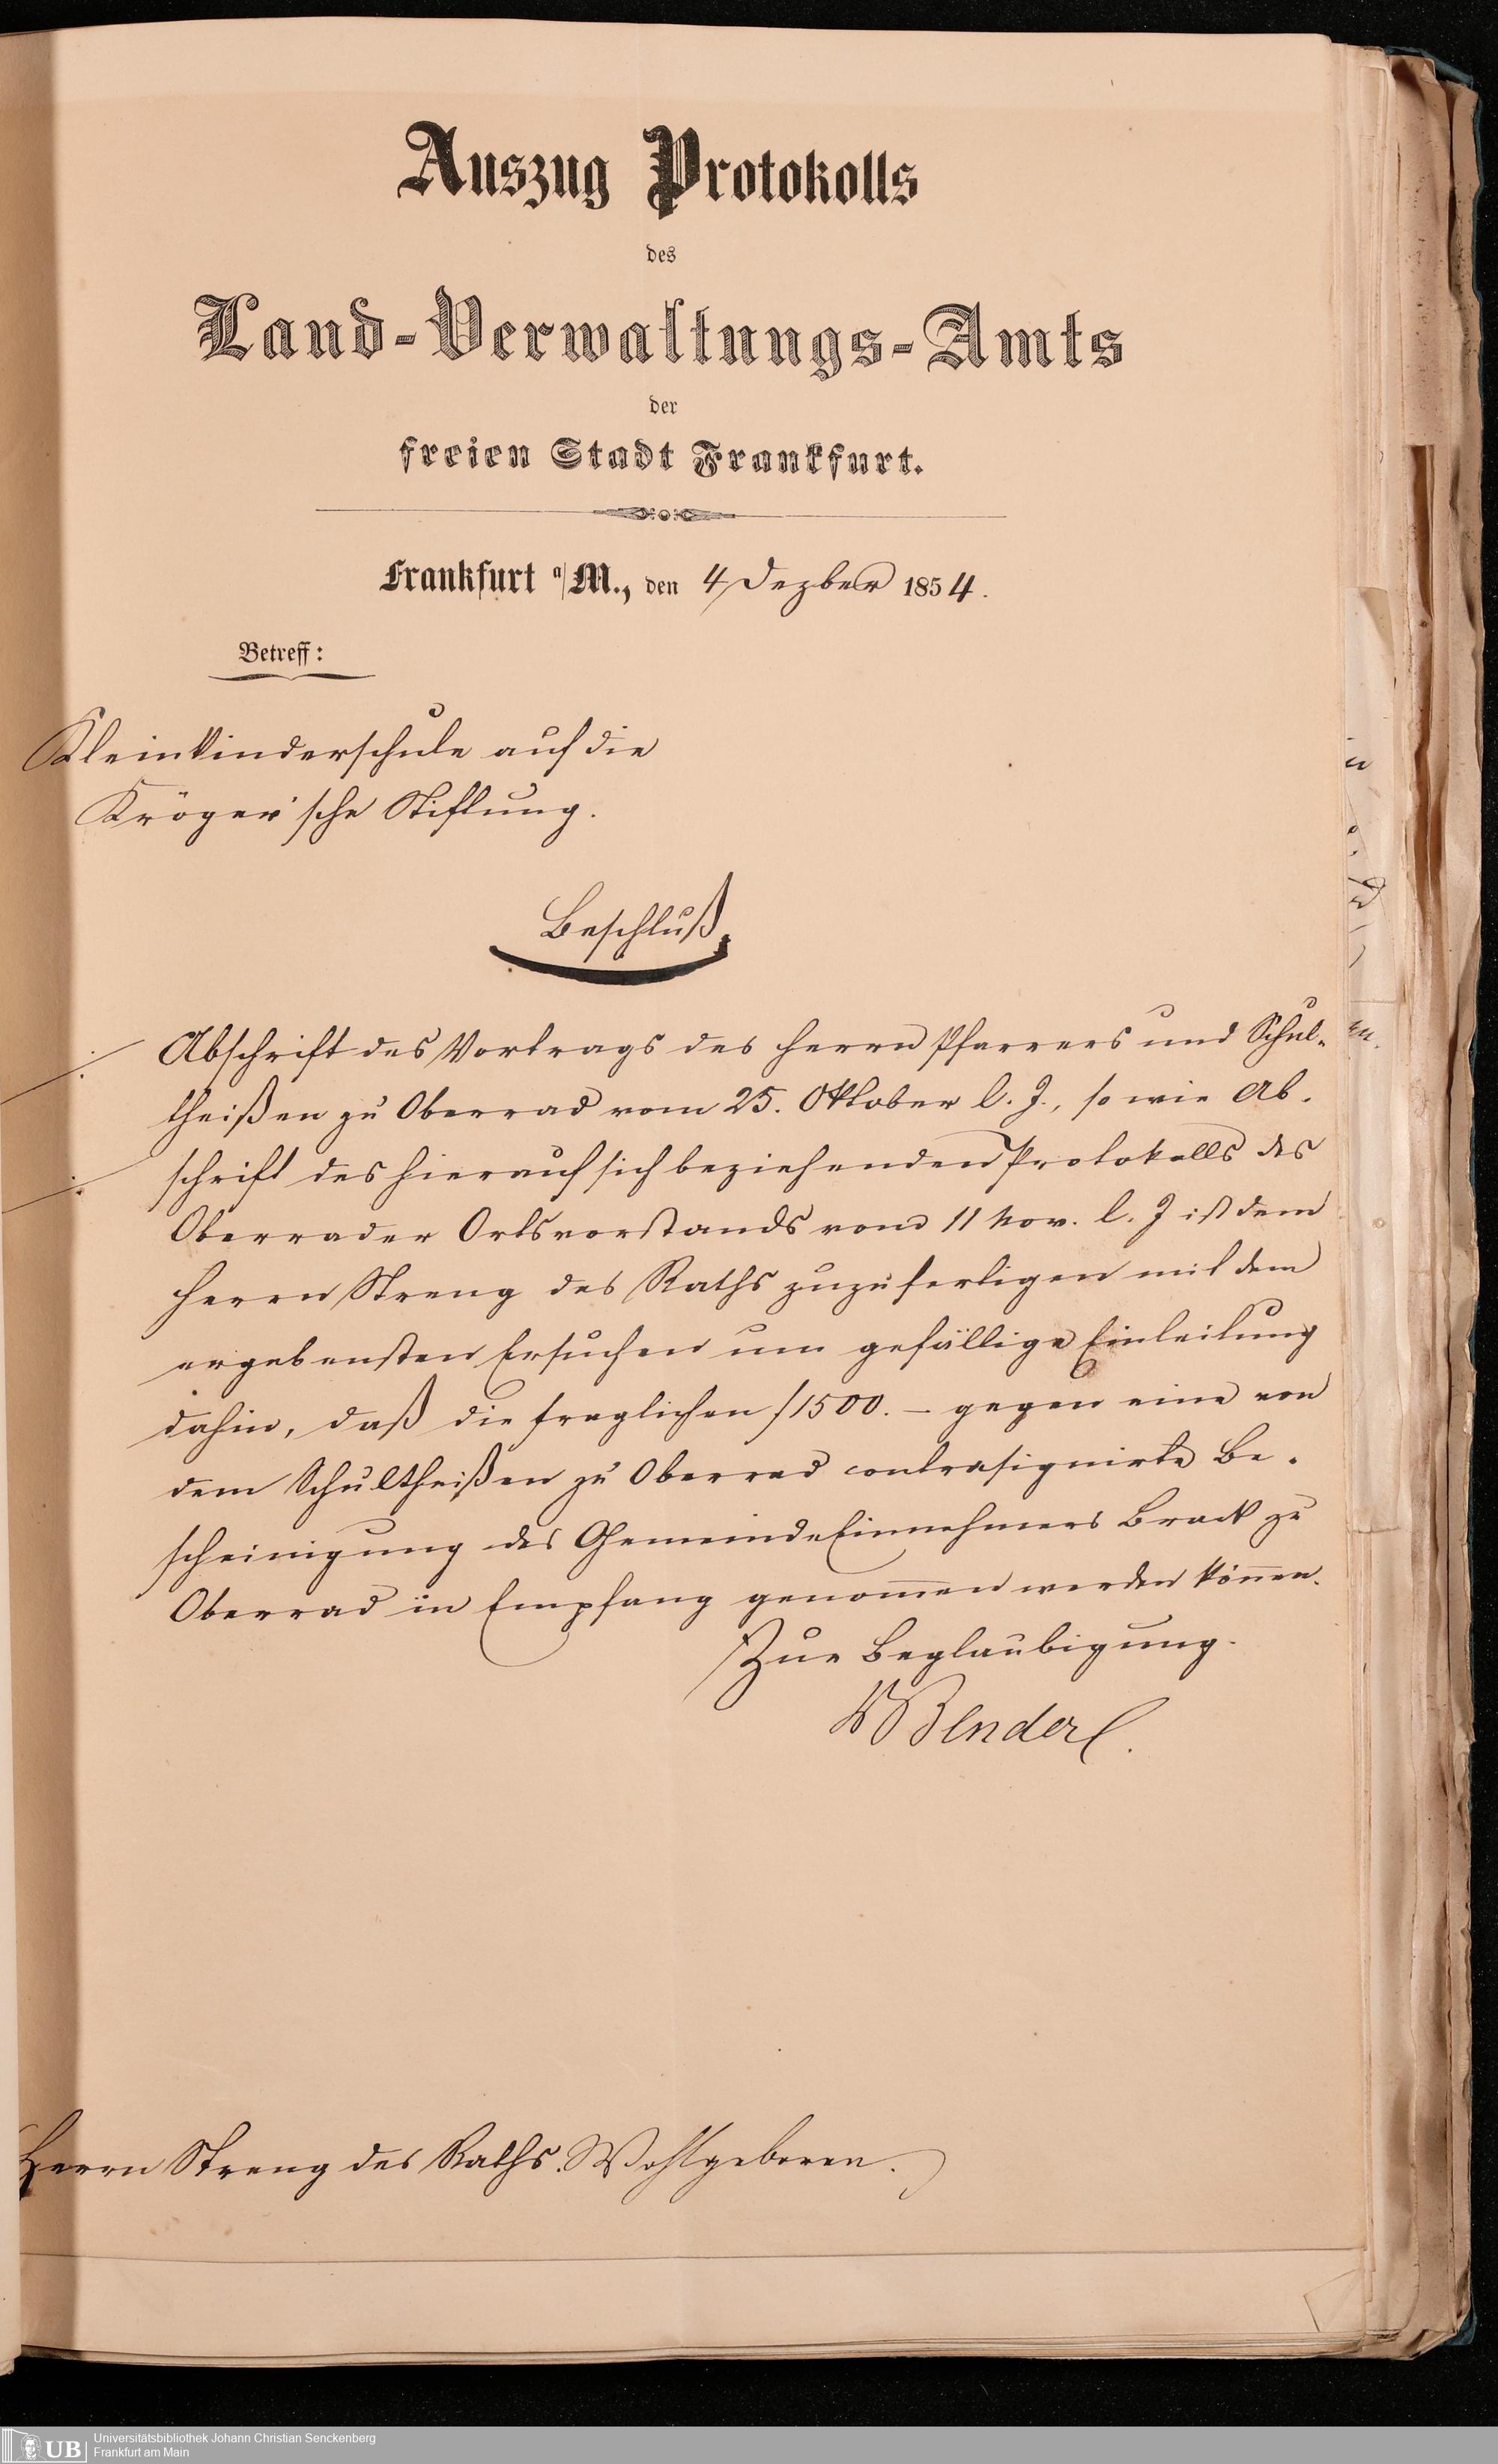 Auszug Protokolls
des
Land-Verwaltungs-Amts
der
freien Stadt Frankfurt.
Frankfurt a/M., den 4 Dezber 1854.
Betreff:
Kleinkinderschule auf die
Kröger'sche Stiftung.
Beschluß.
Abschrift des Vortrags des Herrn Pfarrers und Schul-
theißen zu Oberrad vom 25. Oktober l. J., so wie Ab-
schrift des hierauf sich beziehenden Protokolls des
Oberrader Ortsvorstands vom 11 Nov. l. J ist dem
Herrn Streng des Raths zuzufertigen mit dem
ergebensten Ersuchen um gefällige Einleitung
dahin, daß die fraglichen f 1500. – gegen eine von
dem Schultheißen zu Oberrad contrasignirte Be-
scheinigung des Gemeinde Einnehmers Brack zu
Oberrad in Empfang genom̅en werden kön̅en.
Zur Beglaubigung.
Bender
Herrn Streng des Raths Wohlgeboren.
UB Universitätsbibliothek Johann Christian Senckenberg
Frankfurt am Main